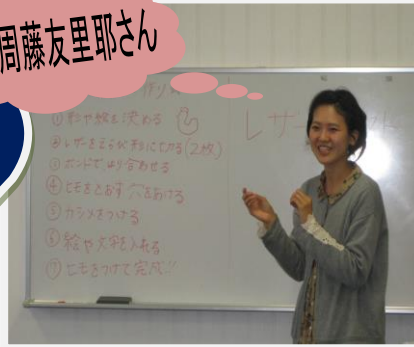 周藤友里耶さん
作り方
①形や絵を決める
②レザーをえらび形に切る(2枚)
③ボンドではり合わせる
④ヒモをとおす穴をあける
⑤カシメをつける
⑥絵や文字を入れる
⑦ヒモをつけて完成!!
レザー